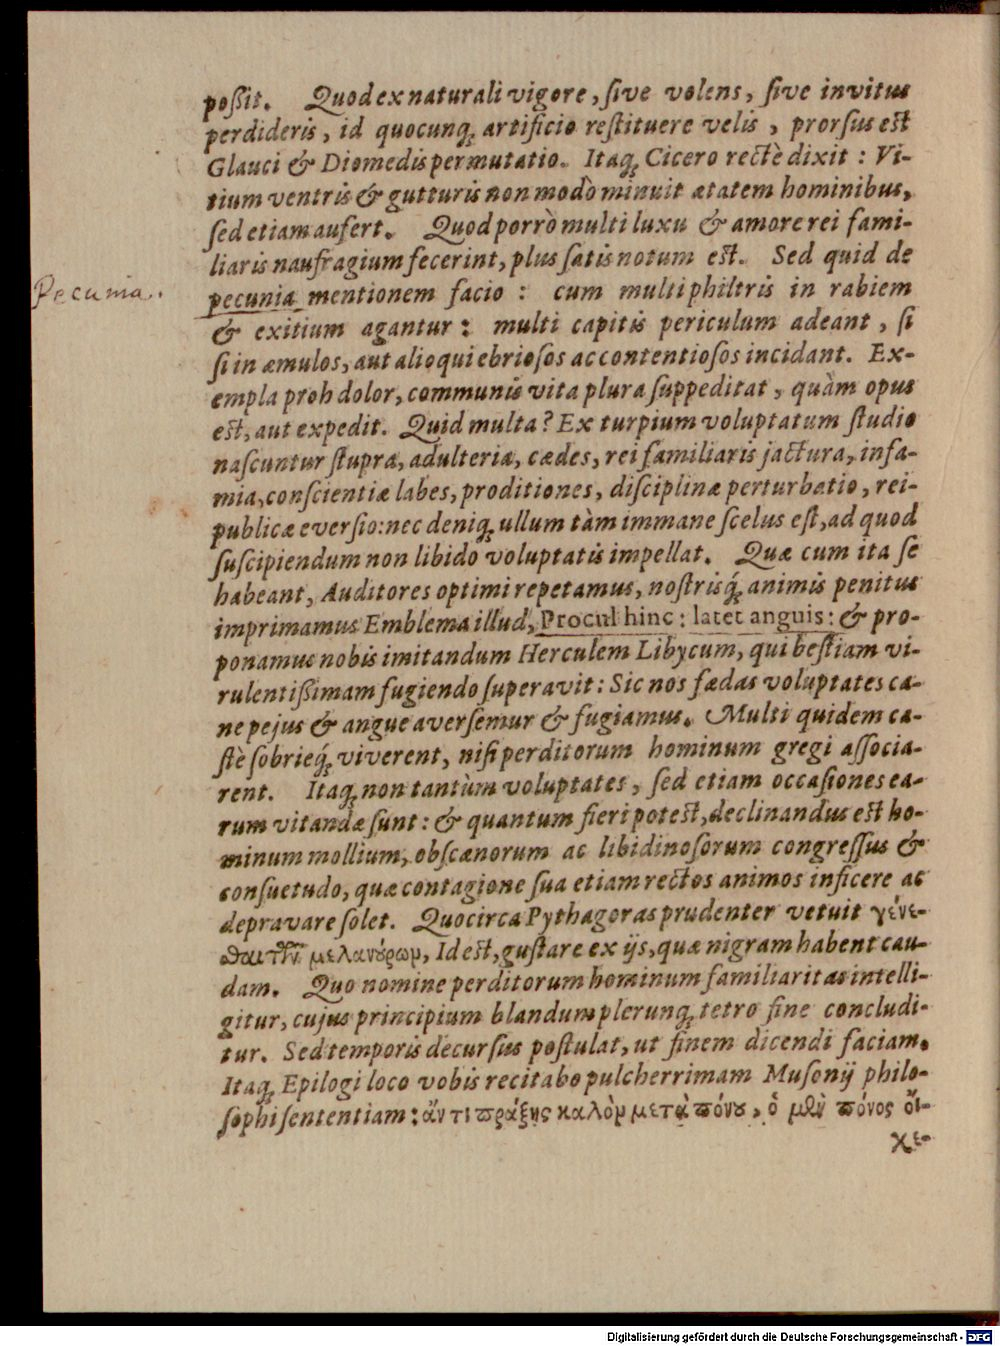 poßit. Quod ex naturali vigore, ſive volens, ſive invitus
perdideris, id quocunq; artificio reſtituere velis, prorſus eſt
Glauci & Diomedis permutatio. Itaq; Cicero rectè dixit: Vi-
tium ventris & gutturis non modò minuit ætatem hominibus,
ſed etiam aufert. Quod porrò multi luxu & amore rei fami-
liaris naufragium fecerint, plus ſatis notum eſt. Sed quid de
Pecunia.
pecunia mentionem facio: cum multi philtris in rabiem
& exitium agantur: multi capitis periculum adeant, ſi
ſi in æmulos, aut alioqui ebrioſos ac contentioſos incidant. Ex-
empla proh dolor, communis vita plura ſuppeditat, quàm opus
eſt, aut expedit. Quid multa? Ex turpium voluptatum ſtudio
naſcuntur ſtupra, adulteria, cædes, rei familiaris jactura, infa-
mia, conſcientiæ labes, proditiones, diſciplinæ perturbatio, rei-
publicæ everſio: nec deniq; ullum tàm immane ſcelus eſt, ad quod
ſuſcipiendum non libido voluptatis impellat. Quæ cum ita ſe
habeant, Auditores optimi repetamus, noſtrisq́; animis penitus
imprimamus Emblema illud, Procul hinc: latet anguis: & pro-
ponamus nobis imitandum Herculem Libycum, qui beſtiam vi-
rulentißimam fugiendo ſuperavit: Sic nos fædas voluptates ca-
ne pejus & angue averſemur & fugiamus. Multi quidem ca-
ſtè ſobrieq́; viverent, niſi perditorum hominum gregi aſſocia-
rent. Itaq; non tantùm voluptates, ſed etiam occaſiones ea-
rum vitandæ ſunt: & quantum fieri poteſt, declinandus eſt ho-
minum mollium, obſcænorum ac libidinoſorum congreſſus &
conſuetudo, quæ contagione ſua etiam rectos animos inficere ac
depravare ſolet. Quocirca Pythagoras prudenter vetuit γένε-
ϑαι τῶν μελανούρων, Id eſt, guſtare ex ijs, quæ nigram habent cau-
dam. Quo nomine perditorum hominum familiaritas intelli-
gitur, cujus principium blandum plerunq; tetro fine concludi-
tur. Sed temporis decurſus poſtulat, ut finem dicendi faciam.
Itaq; Epilogi loco vobis recitabo pulcherrimam Muſonij philo-
ſophi ſententiam: ἄν τι πράξῃς καλὸν μετὰ πόνου, ὁ μὲν πόνος οἴ-
χε-
Digitalisierung gefördert durch die Deutsche Forschungsgemeinschaft - DFG